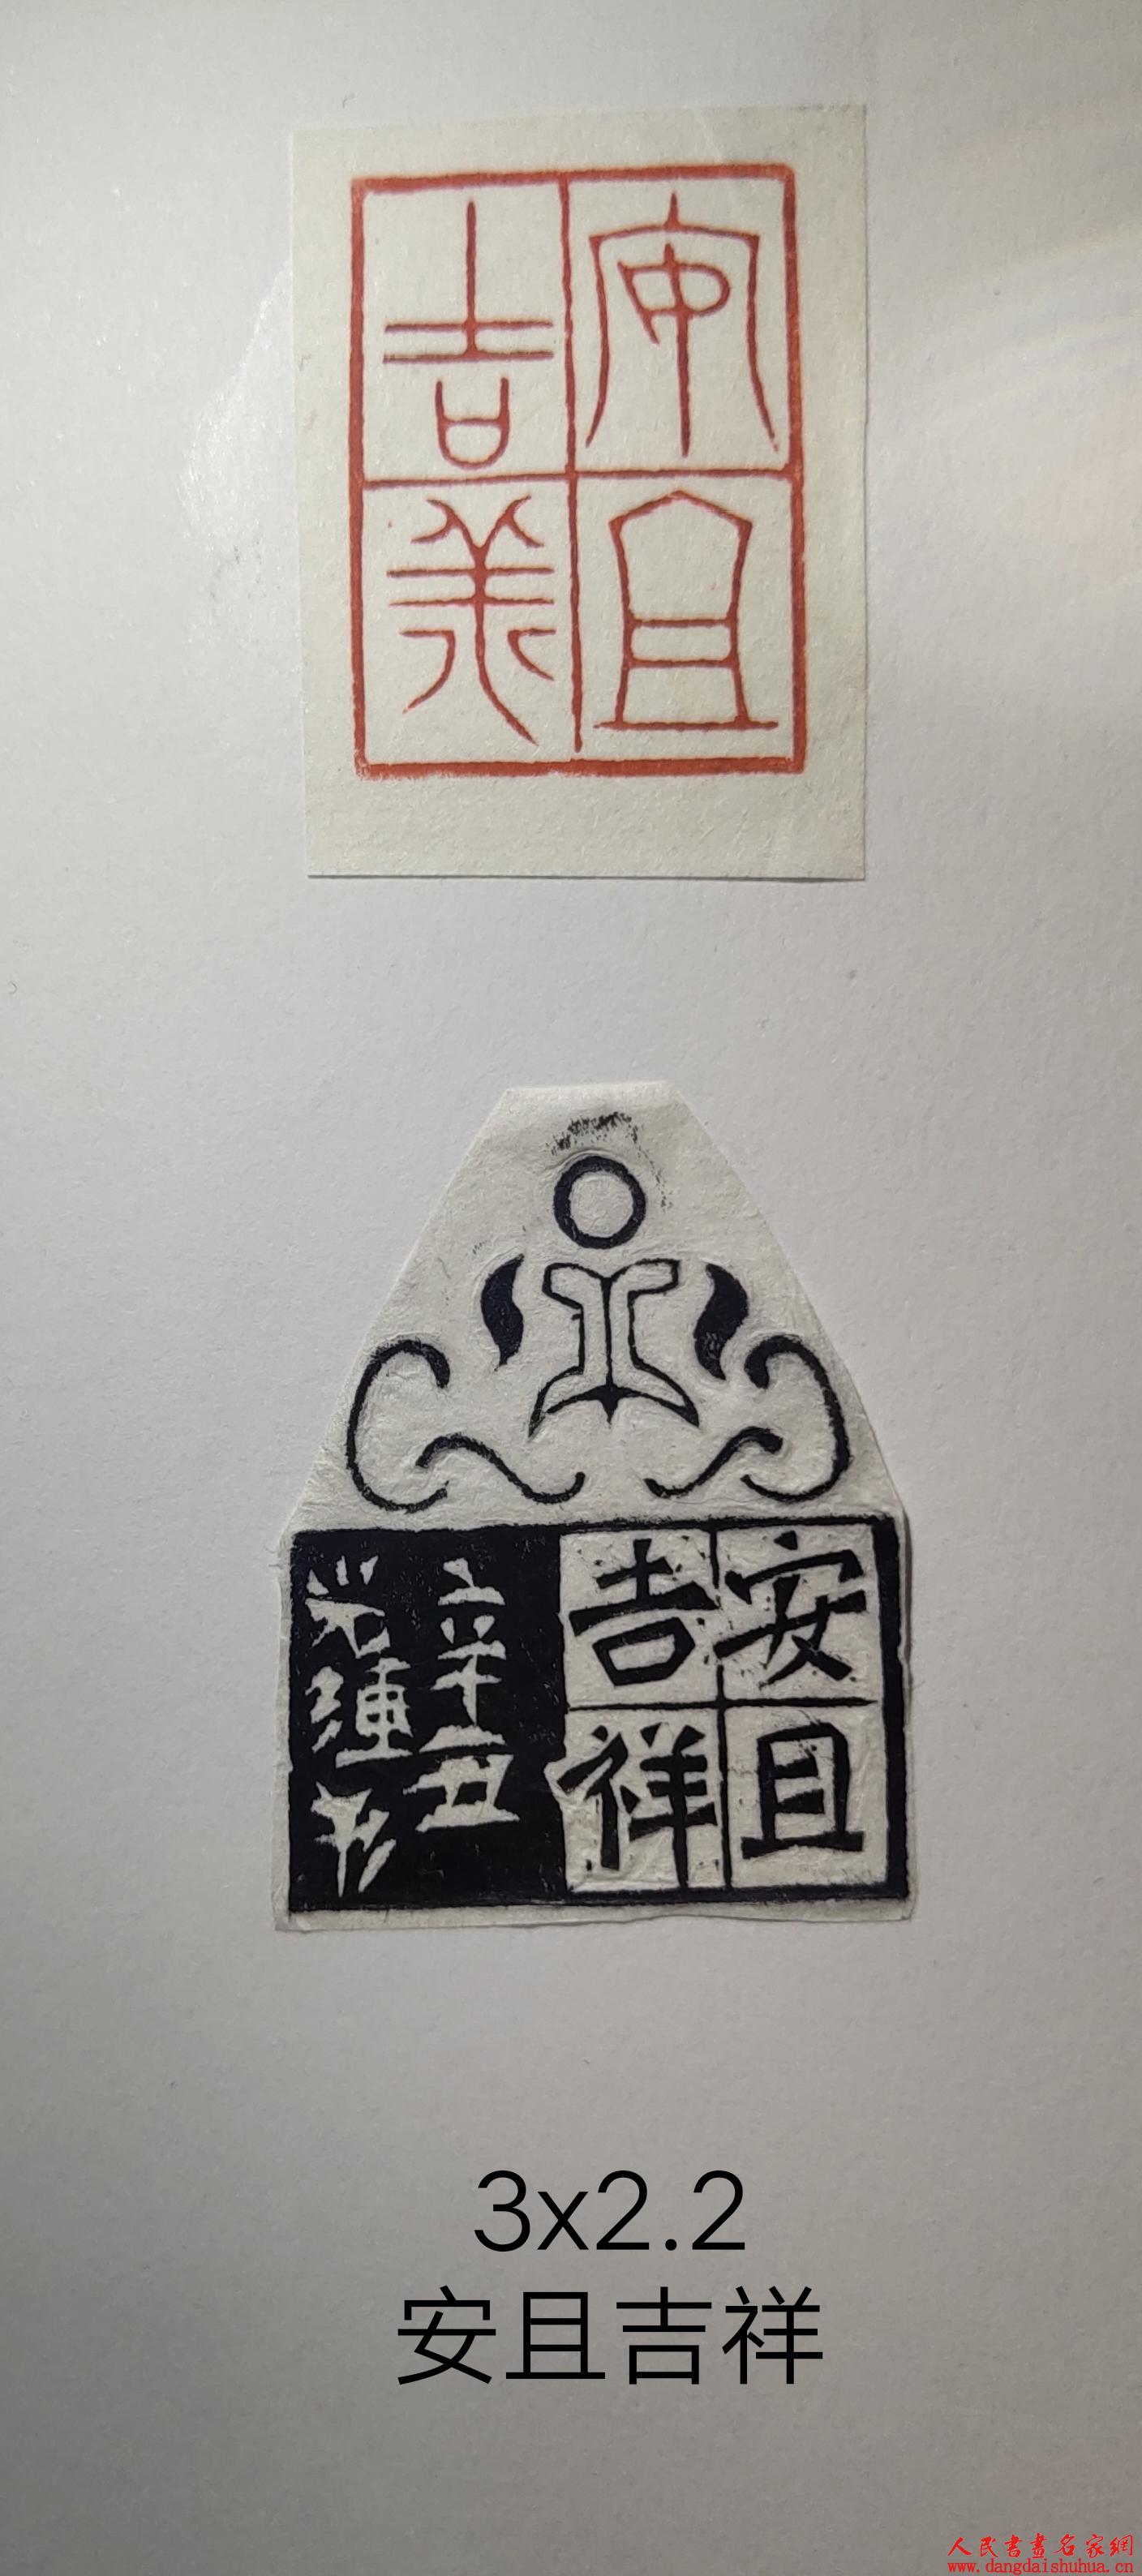 安且
吉羊
安且
吉祥
辛丑
3x2.2
安且吉祥
人民書畫名家網
www.dangdaishuhua.cn